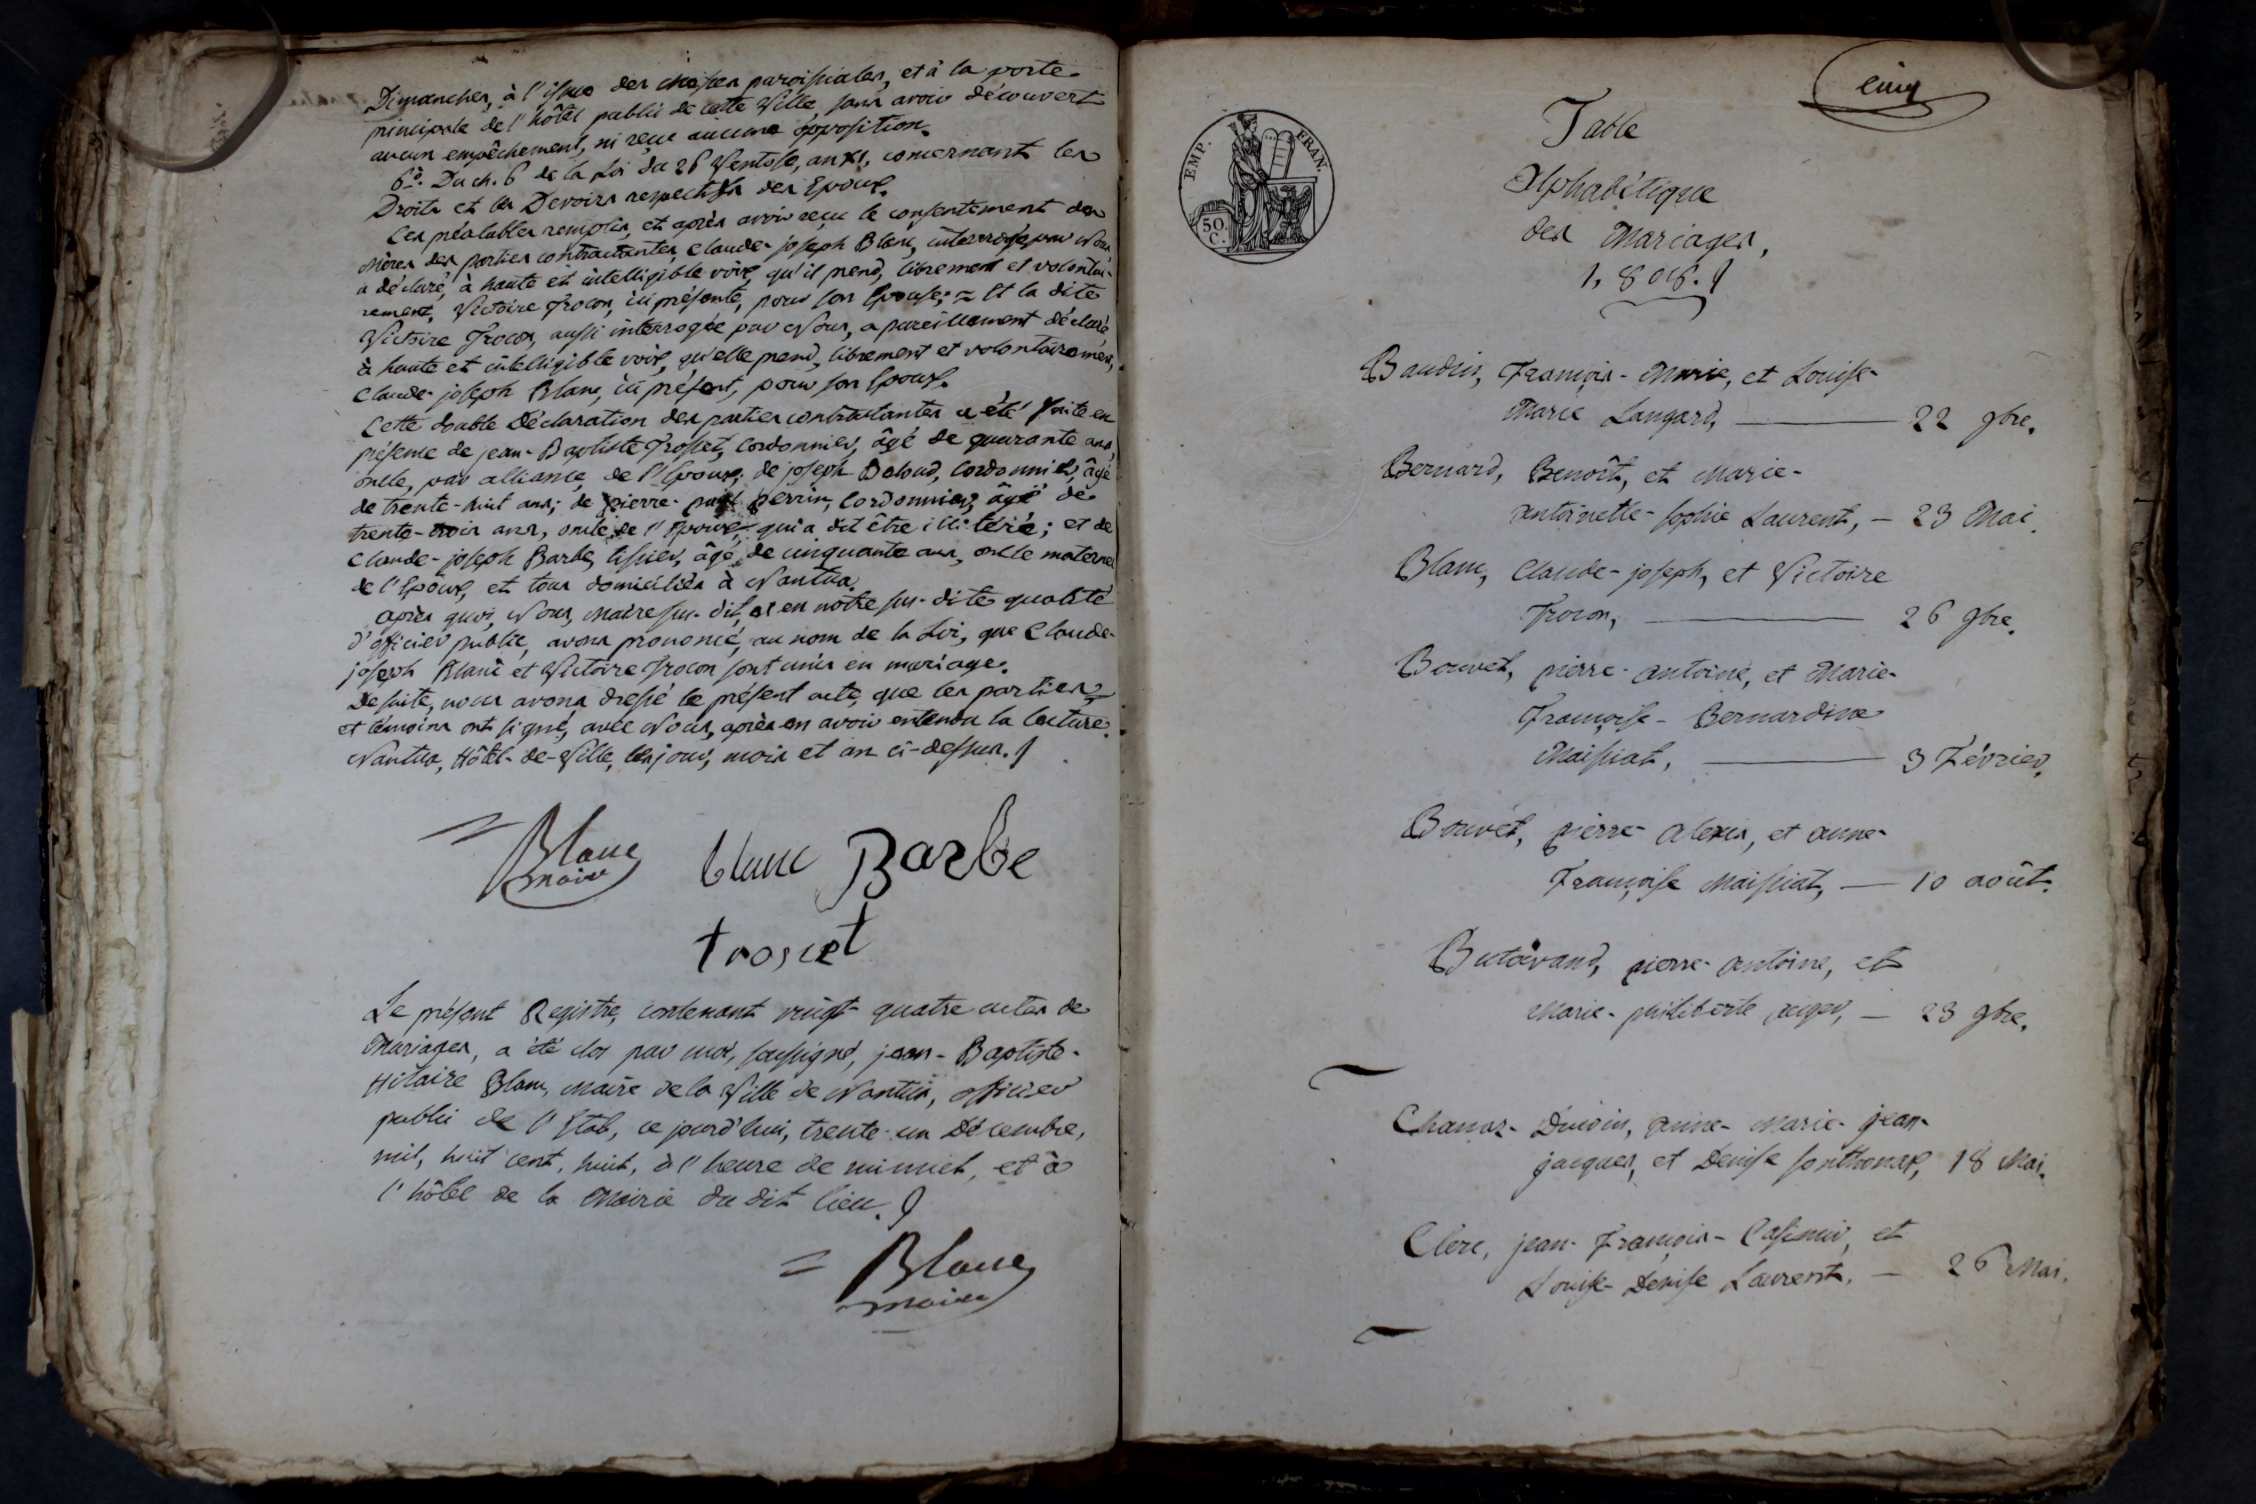 Dimanches, à l'issue des Messes paroissiales, et à la porte
principale de l'hôtel public de cette Ville, sans avoir découvert
aucun empêchement, ni reçu aucune opposition.
6.° Du ch. 6 de la Loi du 26 Ventose, an XI, concernant les
Droits et les Devoirs respectifs des Epoux.
Ces préalables remplis, et après avoir reçu le consentement des
Mères des parties contractantes, Claude-joseph Blanc, interrogé par Nous,
a déclaré, à haute et intelligible voix, qu'il prend, librement et volontai-
rement, Victoire Trocon, ici présente, pour son Epouse; = Et la dite
Victoire Trocon, aussi interrogée par Nous, a pareillement déclaré
à haute et intelligible voix, qu'elle prend, librement et volontairement,
Claude-joseph Blanc, ici présent, pour son Epoux.
Cette double Déclaration des parties contractantes a été faite en
présence de jean-Baptiste Trosset, Cordonnier, âgé de quarante ans,
oncle, par alliance, de l'Epoux; de joseph Baloud, Cordonnier, âgé
de trente-huit ans; de pierre- perrin, Cordonnier, âgé de
trente-trois ans, oncle de l' qui a dit être illitéré; et de
Claude-joseph Barbe, tissier, âgé de cinquante ans, oncle maternel
de l'Epoux, et tous domiciliés à Nantua.
après quoi, Nous, Maire sus-dit, et en nôtre sus-dite qualité
d'officier public, avons prononcé, au nom de la Loi, que Claude-
joseph Blanc et Victoire Trocon sont unis en mariage.
De suite, nous avons dressé le présent acte, que les parties
et témoins ont signé, avec Nous, après en avoir entendu la lecture.
Nantua, Hôtel-de-Ville, les jour, mois et an ci-dessus.
Blanc
maire
blanc Barbe
trosset
Le présent Registre, contenant vingt quatre actes de
Mariages, a été clos par moi, soussigné, jean-Baptiste-
Hilaire Blanc, Maire de la Ville de Nantua, officier
public de l'Etat, ce jourd'hui, trente-un Décembre,
mil, huit cent, huit, à l'heure de minuit, et à
l'hôtel de la Mairie du dit lieu.
Blanc
maire
cinq
EMP. FRAN.
50
C.
Table
Alphabétique
des Mariages,
1,808.
Baudin, François-Marie, et Louise-
Marie Langard, 22 9bre.
Bernard, Benoît, et Marie-
antoinette-sophie Laurent, — 23 Mai.
Blanc, Claude-joseph, et Victoire
Trocon, 26 9bre.
Bouvet, pierre-antoine, et Marie-
Françoise-Bernardine
Maissiat, 3 Février.
Bouvet, pierre-alexis, et anne-
Françoise Maissiat, — 10 août.
Butavand, pierre-antoine, et
Marie-philiberte — 23 9bre.
Chanoz- anne-Marie-jean-
jacques, et Denise sonthonax, 18 Mai.
Clerc, jean-François-Casimir, et
Louise-Denise Laurent, — 26 Mai.